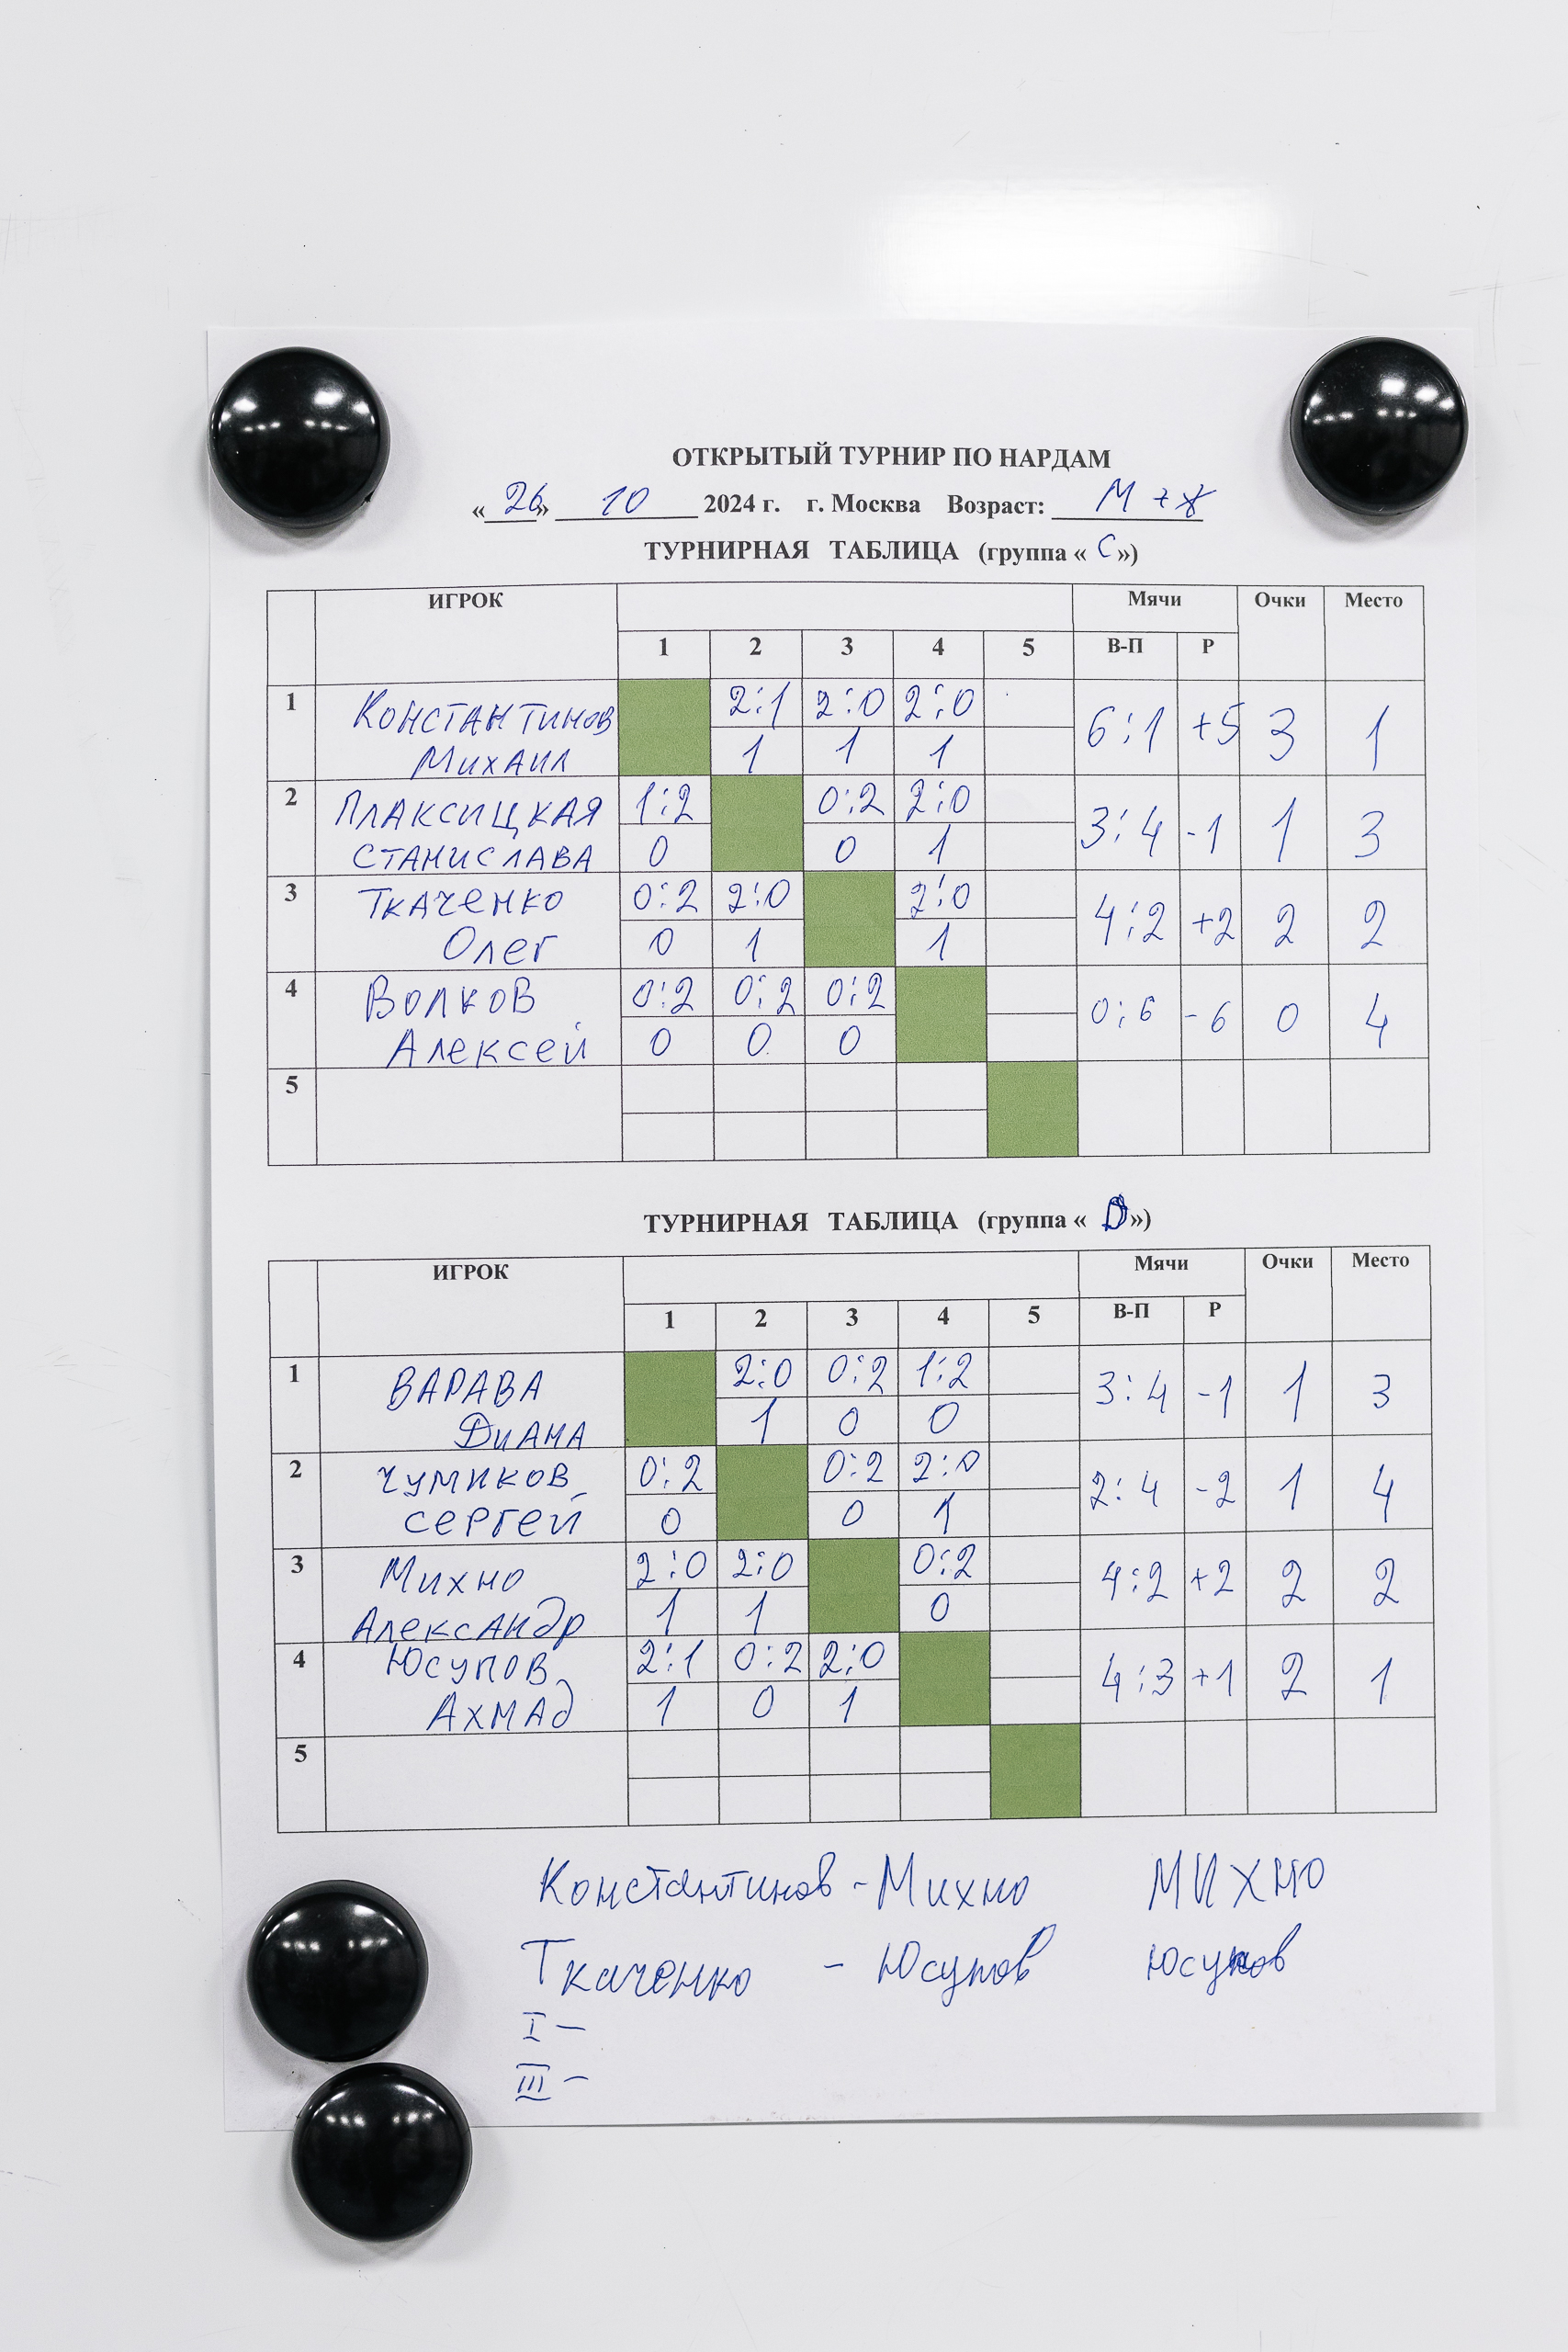 ОТКРЫТЫЙ ТУРНИР ПО НАРДАМ
«26» 10 2024 г. г. Москва Возраст: М + Ж
ТУРНИРНАЯ ТАБЛИЦА (группа «С»)
ИГРОК Мячи Очки Место
1 2 3 4 5 В-П Р
1 Константинов 2:1 2:0 2:0 6:1 +5 3 1
Михаил 1 1 1
2 Плаксицкая 1:2 0:2 2:0 3:4 -1 1 3
Станислава 0 0 1
3 Ткаченко 0:2 2:0 2:0 4:2 +2 2 2
Олег 0 1 1
4 Волков 0:2 0:2 0:2 0:6 -6 0 4
Алексей 0 0 0
5
ТУРНИРНАЯ ТАБЛИЦА (группа «D»)
ИГРОК Мячи Очки Место
1 2 3 4 5 В-П Р
1 ВАРАВА 2:0 0:2 1:2 3:4 -1 1 3
Диана 1 0 0
2 Чумиков 0:2 0:2 2:0 2:4 -2 1 4
Сергей 0 0 1
3 Михно 2:0 2:0 0:2 4:2 +2 2 2
Александр 1 1 0
4 Юсупов 2:1 0:2 2:0 4:3 +1 2 1
Ахмад 1 0 1
5
Константинов - Михно МИХНО
Ткаченко - Юсупов Юсупов
I -
III -